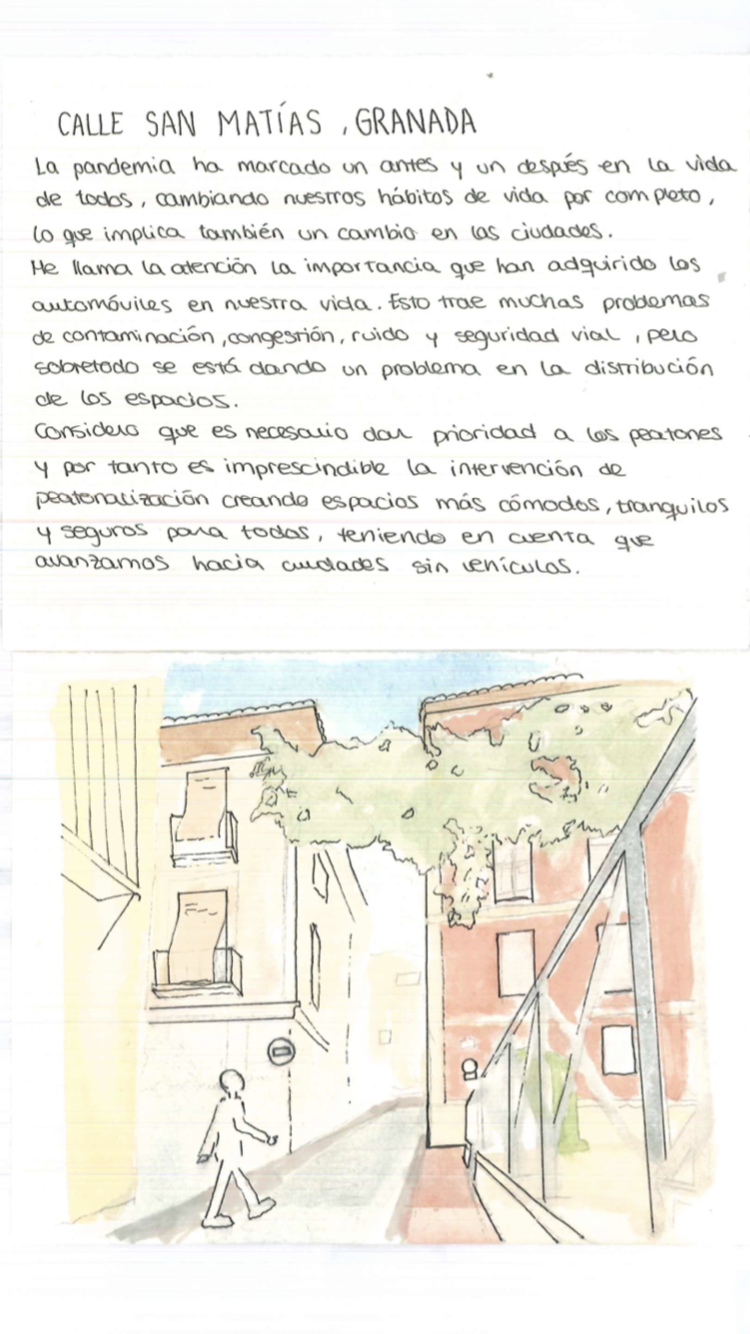 CALLE SAN MATÍAS , GRANADA
La pandemia ha marcado un antes y un despúes en la vida
de todos , cambiando nuestros hábitos de vida por completo ,
lo que implica también un cambio en las ciudades .
Me llama la atención la importancia que han adquirido los
automóviles en nuestra vida . Esto trae muchas problemas
de contaminación , congestión , ruido y seguridad vial , pero
sobretodo se está dando un problema en la distribución
de los espacios .
Considero que es necesario dar prioridad a los peatones
y por tanto es imprescindible la intervención de
peatonalización creando espacios más cómodos , tranquilos
y seguros para todos , teniendo en cuenta que
avanzamos hacia ciudades sin vehículos .